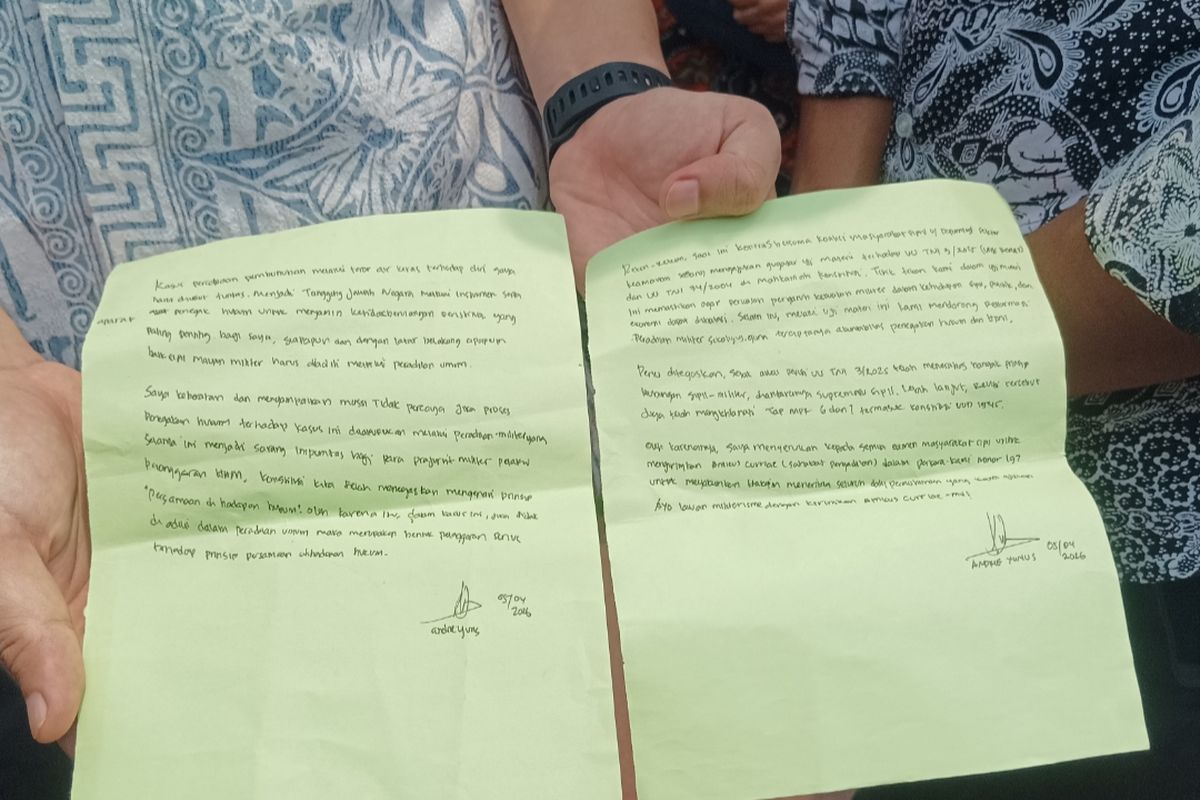 Kasus percobaan pembunuhan melalui teror air keras terhadap diri saya
harus diusut tuntas. Menjadi Tanggung Jawab Negara melalui instrumen serta
aparat penegak hukum untuk menjamin ketidakberulangan peristiwa, yang
paling penting bagi saya, siapapun dan dengan latar belakang apapun
baik sipil maupun militer harus diadili melalui peradilan umum.
Saya keberatan dan menyampaikan mosi Tidak percaya jika proses
Penegakan hukum terhadap kasus ini dilakukan melalui peradilan militer yang
selama ini menjadi sarang impunitas bagi para prajurit militer pelaku
Pelanggaran HAM, Konstitusi kita telah menegaskan mengenai prinsip
"Persamaan di hadapan hukum". oleh karena itu, dalam kasus ini, jika tidak
di adili dalam peradilan umum maka merupakan bentuk pelanggaran serius
terhadap prinsip persamaan dihadapan hukum.
03/04
2026
Andrie Yunus
Rekan-rekan, saat ini KontraS bersama Koalisi masyarakat sipil u/ Reformasi Sektor
Keamanan sedang mengajukan gugatan uji materi terhadap UU TNI 3/2025
dan UU TNI 34/2004 di mahkamah konstitusi. Titik tekan kami dalam uji materi
ini memastikan agar perluasan pengaruh kekuatan militer dalam kehidupan sipil, politik, dan
ekonomi dapat dibatasi. Selain itu, melalui uji materi ini kami mendorong Reformasi
Peradilan militer sekaligus terciptanya akuntabilitas penegakan hukum dan HAM.
Perlu ditegaskan, sejak awal revisi UU TNI 3/2025 telah menerabas banyak prinsip
hubungan sipil-militer, diantaranya supremasi sipil. Lebih lanjut, Revisi tersebut
juga telah mengkhianati Tap MPR 6 dan 7 termasuk konstitusi UUD 1945.
Oleh karenanya, saya menyerukan kepada semua elemen masyarakat sipil untuk
mengirimkan Amicus Curiae (sahabat pengadilan) dalam perkara kami nomor 197
untuk meyakinkan Hakim menerima seluruh dalil permohonan yang kami
Ayo lawan militerisme dengan kirimkan Amicus Curiae-mu!
03/04
2026
ANDRIE YUNUS